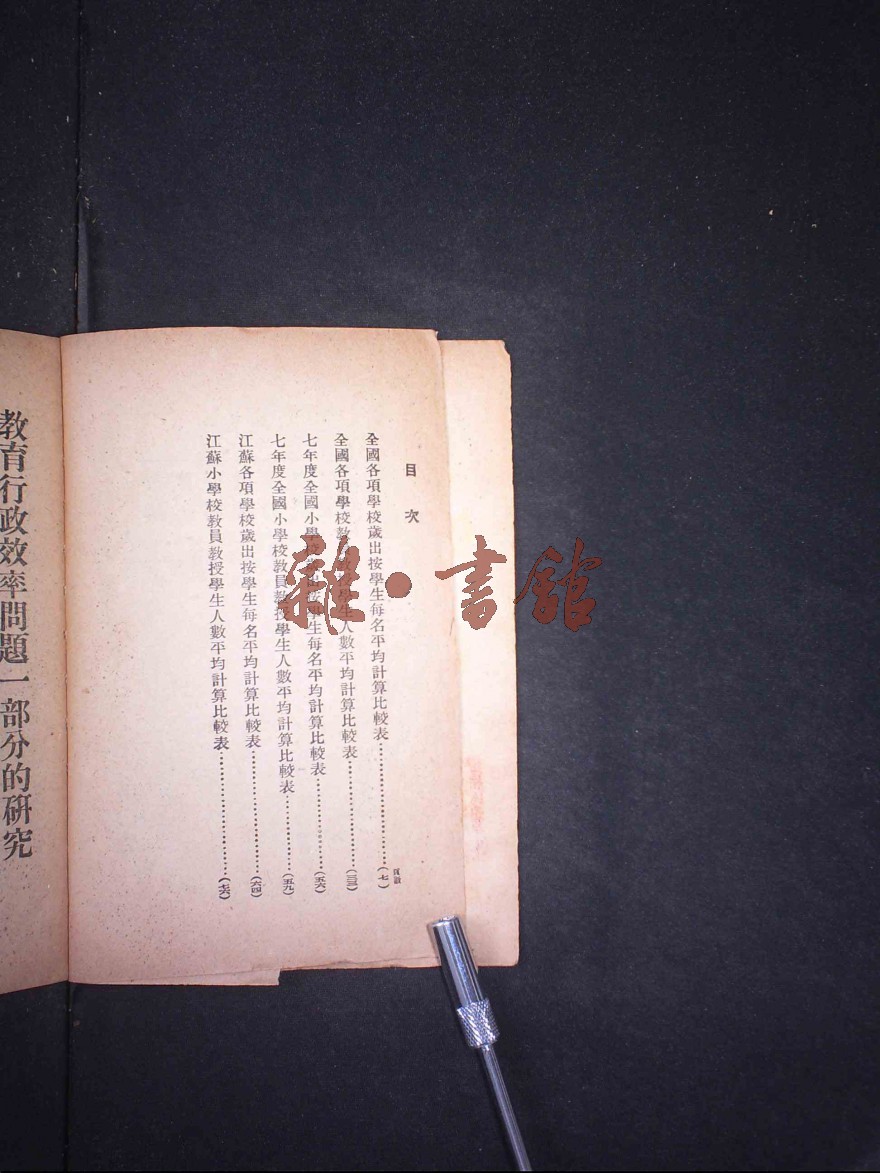 目次
頁數
全國各項學校歲出按學生每名平均計算比較表……………………(七)
全國各項學校教員教授學生人數平均計算比較表……………………(三三)
七年度全國小學校歲出按學生每名平均計算比較表………………(五六)
七年度全國小學校教員教授學生人數平均計算比較表………………(五九)
江蘇各項學校歲出按學生每名平均計算比較表……………………(六四)
江蘇小學校教員教授學生人數平均計算比較表……………………(七六)
教育行政效率問題一部分的研究
雜·書館